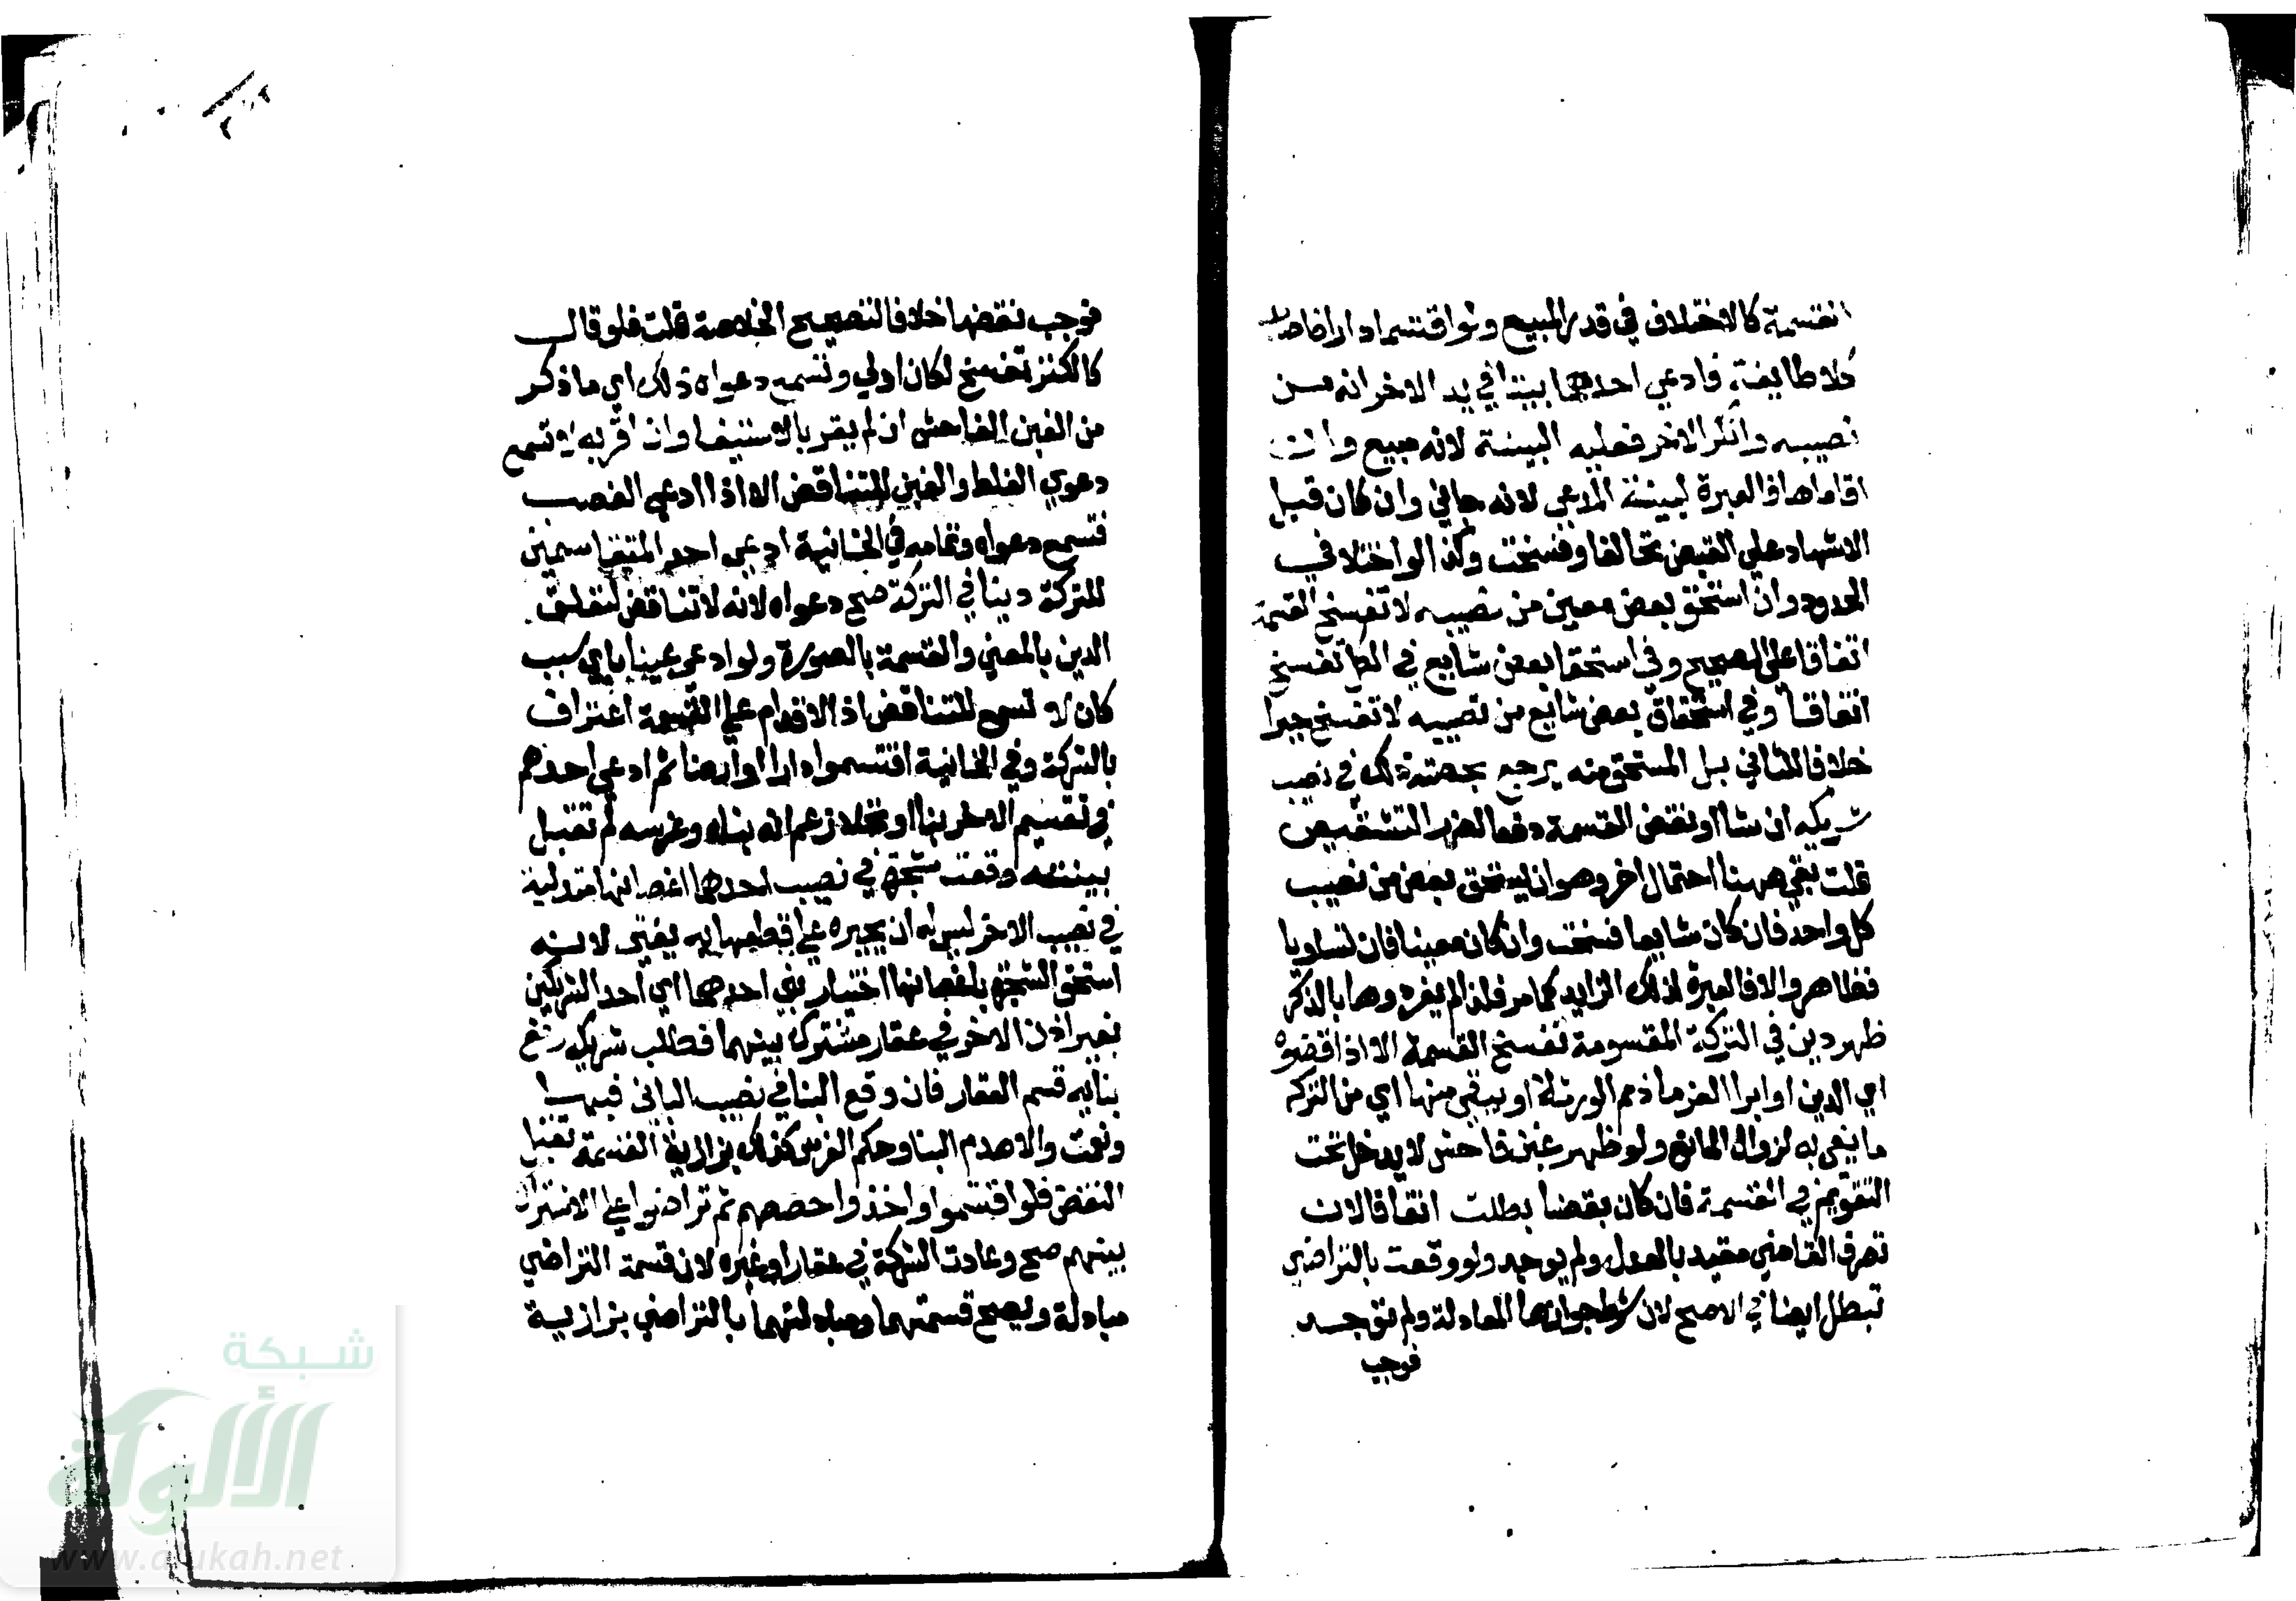 القسمة كالاختلاف في قدر المبيع ولو اقتسما دارا فاصاب
كلا طايفة فادعي احدهما بيتا في يد الاخر انه مسن
نصيبه وانكر الاخر فعليه البينة لانه مبيع وان
اقاماها فالعبرة لبينة المدعي لانه خارج وان كان قبل
الاشهاد علي القبض تحالفا وفسخت وكذا لو اختلا في
الحدود وان استحق بعض معين من نصيبه لا تفسخ القسمة
اتفاقا علي الصحيح وفي استحقا بعض شايع في الكل تفسخ
اتفاقا وفي استحقاق بعض شايع من نصيبه لا تفسخ جبرا
خلافا للثاني بل المستحق منه يرجع بحصته ذلك في نصيب
شريكه ان شا او نقض القسمة دفعا لضرر التشقيص
قلت بقي ههنا احتمال اخر وهو ان يستحق بعض من نصيب
كل واحد فان كان شايعا فسخت وان كان معينا فان تساويا
فظاهر والا فالعبرة لذلك الزايد كما مر فلذا لم يفردوها بالذكر
ظهر دين في التركة المقسومة تفسخ القسمة الا اذا قضوه
اي الدين او ابرا الغرما ذمم الورثة او يبقي منها اي من التركة
ما يفي به لزوال المانع ولو ظهر غبن فاحش لا يدخل تحت
التقويم في القسمة فان كان بقضا بطلت اتفاقا لان
تصرف القاضي مقيد بالعدل ولم يوجد ولو وقعت بالتراضي
تبطل ايضا في الاصح لان شرط جوازها المعادلة ولم توجد
فوجب
فوجب نقضها خلافا لتصحيح الخلاصة قلت فلو قال
كالكنز تفسخ لكان اولي وتسمع دعواه ذلك اي ما ذكر
من الغبن الفاحش ان لم يقر بالاستيفا وان اقر به لا تسمع
دعوي الغلط والغبن للتناقض الا اذا ادعي الغصب
فتسمع دعواه وتمامه في الخانية ادعي احد المتقاسمين
للتركة دينا في التركة صح دعواه لانه لا تناقض لتعلق
الدين بالمعني والقسمة بالصورة ولو ادعي عينا باي سبب
كان لا تسمع للتناقض اذ الاقدام علي القسمة اعتراف
بالشركة وفي الخانية اقتسموا دارا او ارضا ثم ادعي احدهم
في قسم الاخر بنا او نخلا زعم انه بناه وغرسه لم تقبل
بينته وقعت شجرة في نصيب احدهما اغصانها متدلية
في نصيب الاخر ليس له ان يجبره علي قطعها به يفتي لانه
استحق الشجرة باغصانها اختيار بني احدهما اي احد الشريكين
بغير اذن الاخر في عقار مشترك بينهما فطلب شريكه رفع
بنايه قسم العقار فان وقع البنا في نصيب الباني فبها
ونعمت والا هدم البنا وحكم الغرس كذلك بزازية القسمة تقبل
النقض فلو اقتسموا واخذوا حصصهم ثم تراضوا علي الاشتراك
بينهم صح وعادت الشركة في عقار او غيره لان قسمة التراضي
مبادلة ويصح قسمتهما ومبادلتهما بالتراضي بزازية
شبكة
الألوكة
www.alukah.net